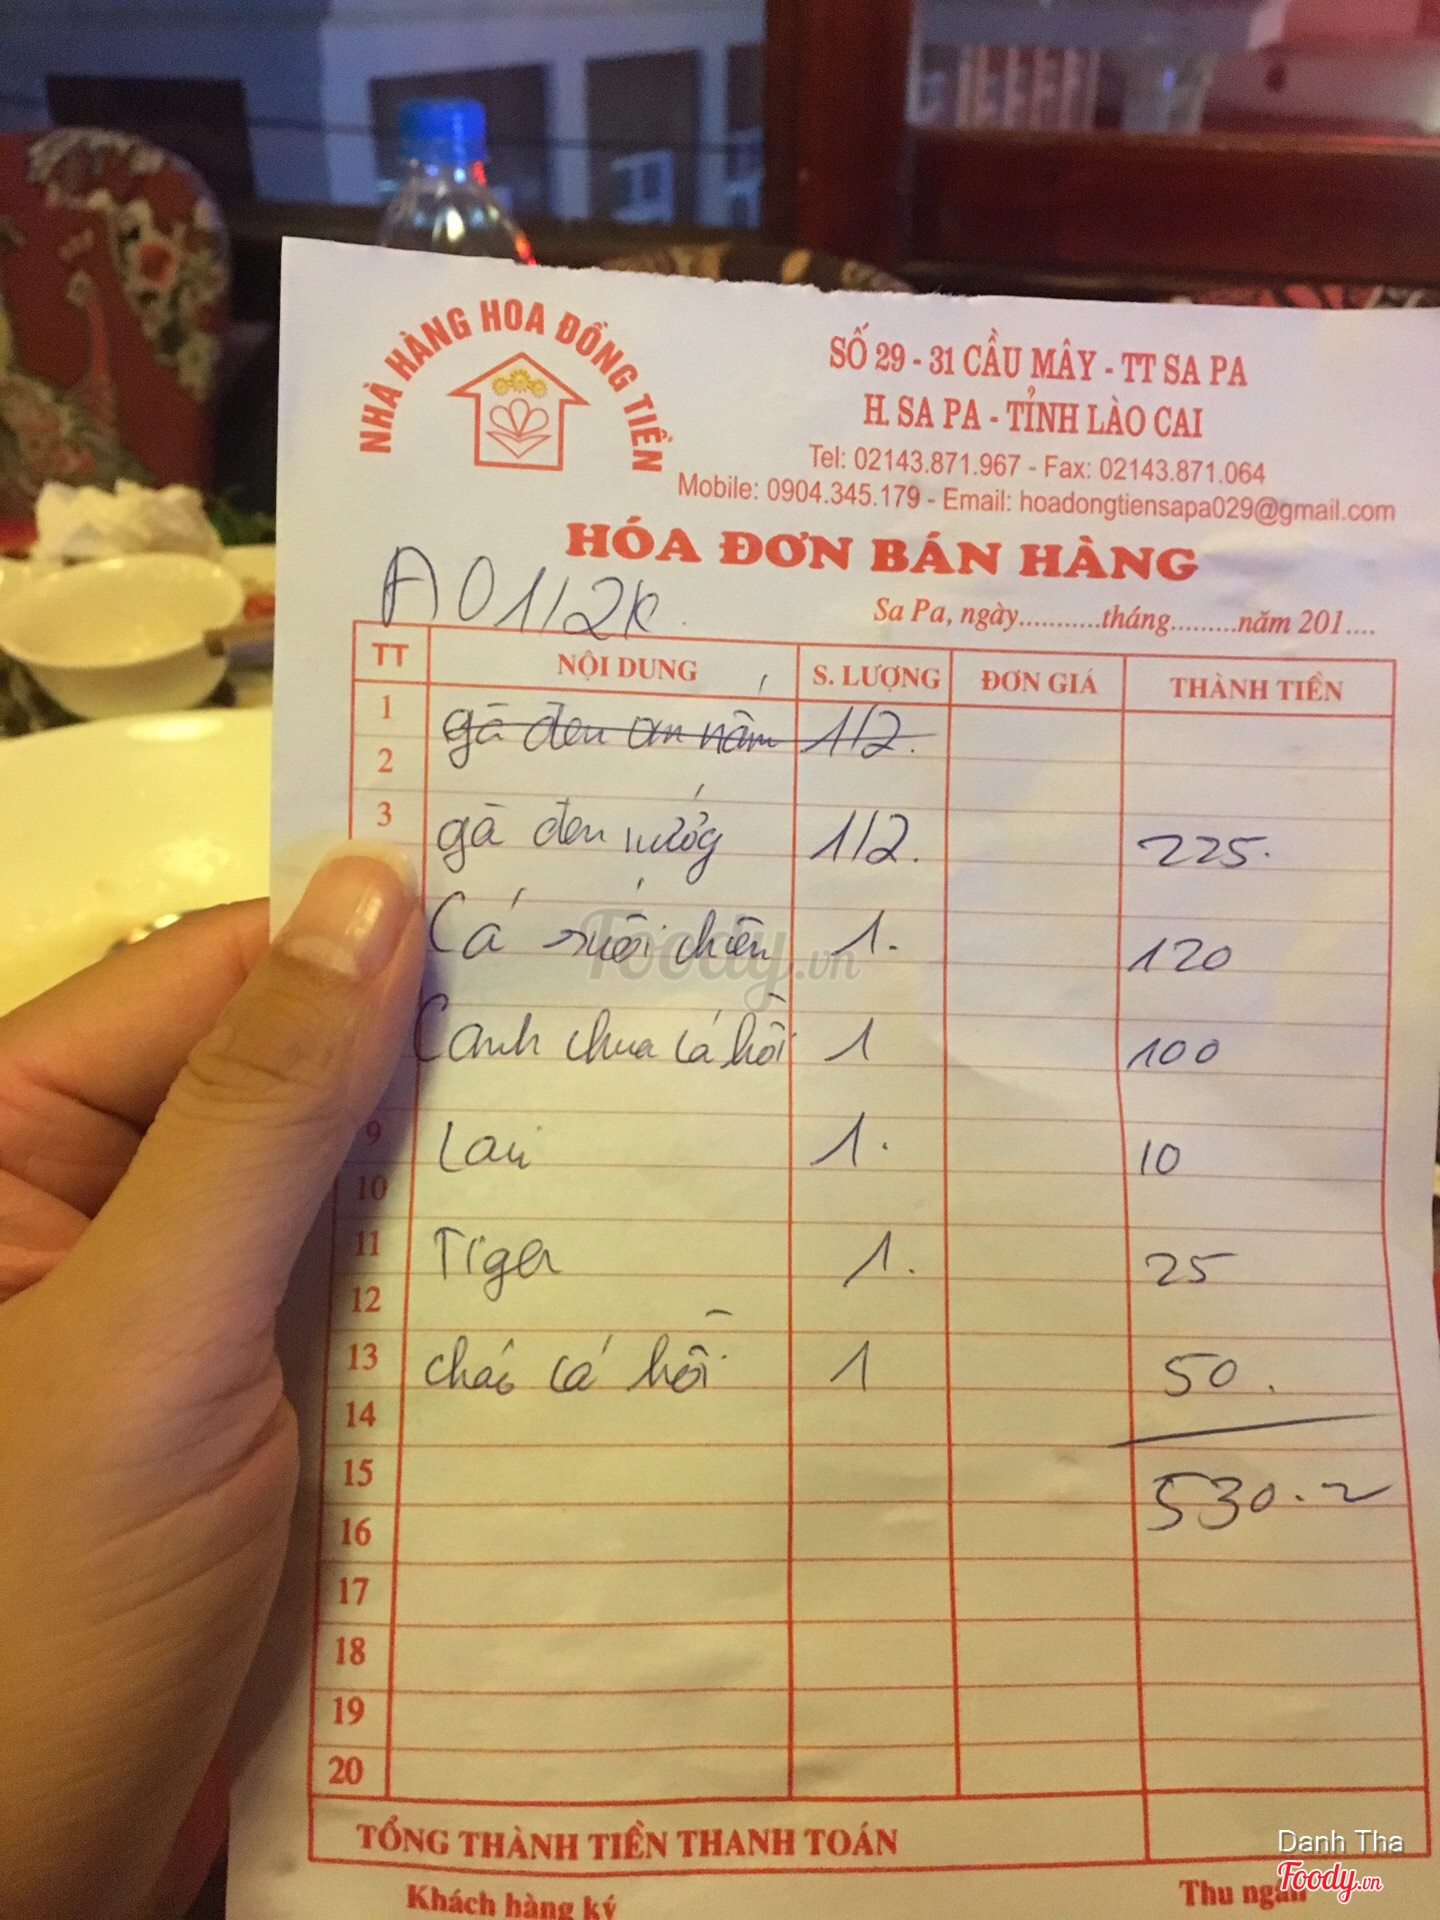 NHÀ HÀNG HOA ĐỒNG TIỀN
SỐ 29 - 31 CẦU MÂY - TT SA PA
H. SA PA - TỈNH LÀO CAI
Tel: 02143.871.967 - Fax: 02143.871.064
Mobile: 0904.345.179 - Email: hoadongtiensapa029@gmail.com
HÓA ĐƠN BÁN HÀNG
A01/2K
Sa Pa, ngày...........tháng.........năm 201....
TT NỘI DUNG S. LƯỢNG ĐƠN GIÁ THÀNH TIỀN
1 gà đen 1/2.
2
3 gà đen nướng 1/2. 225.
Cá suối chiên 1. 120
Foody.vn
Canh chua cá hồi 1 100
9 Lavi 1. 10
10
11 Tiger 1. 25
12
13 cháo cá hồi 1 50.
14
15 530.
16
17
18
19
20
TỔNG THÀNH TIỀN THANH TOÁN
Khách hàng ký Thu ngân
Danh Tha
Foody.vn